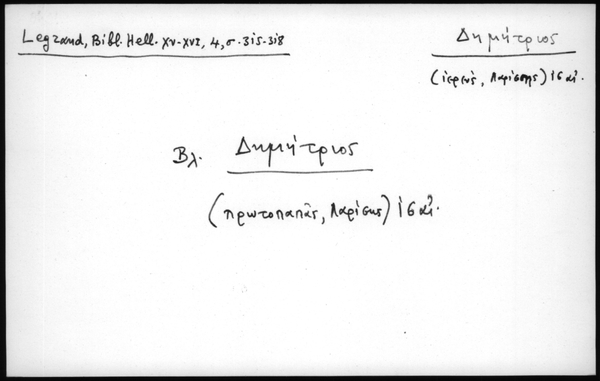 Legrand, Bibl. Hell. XV-XVI, 4, σ. 315-318
Δημήτριος
(ἱερεὺς, Λαρίσης) ις αἰ.
Βλ. Δημήτριος
(πρωτοπαπᾶς, Λαρίσης) ις αἰ.